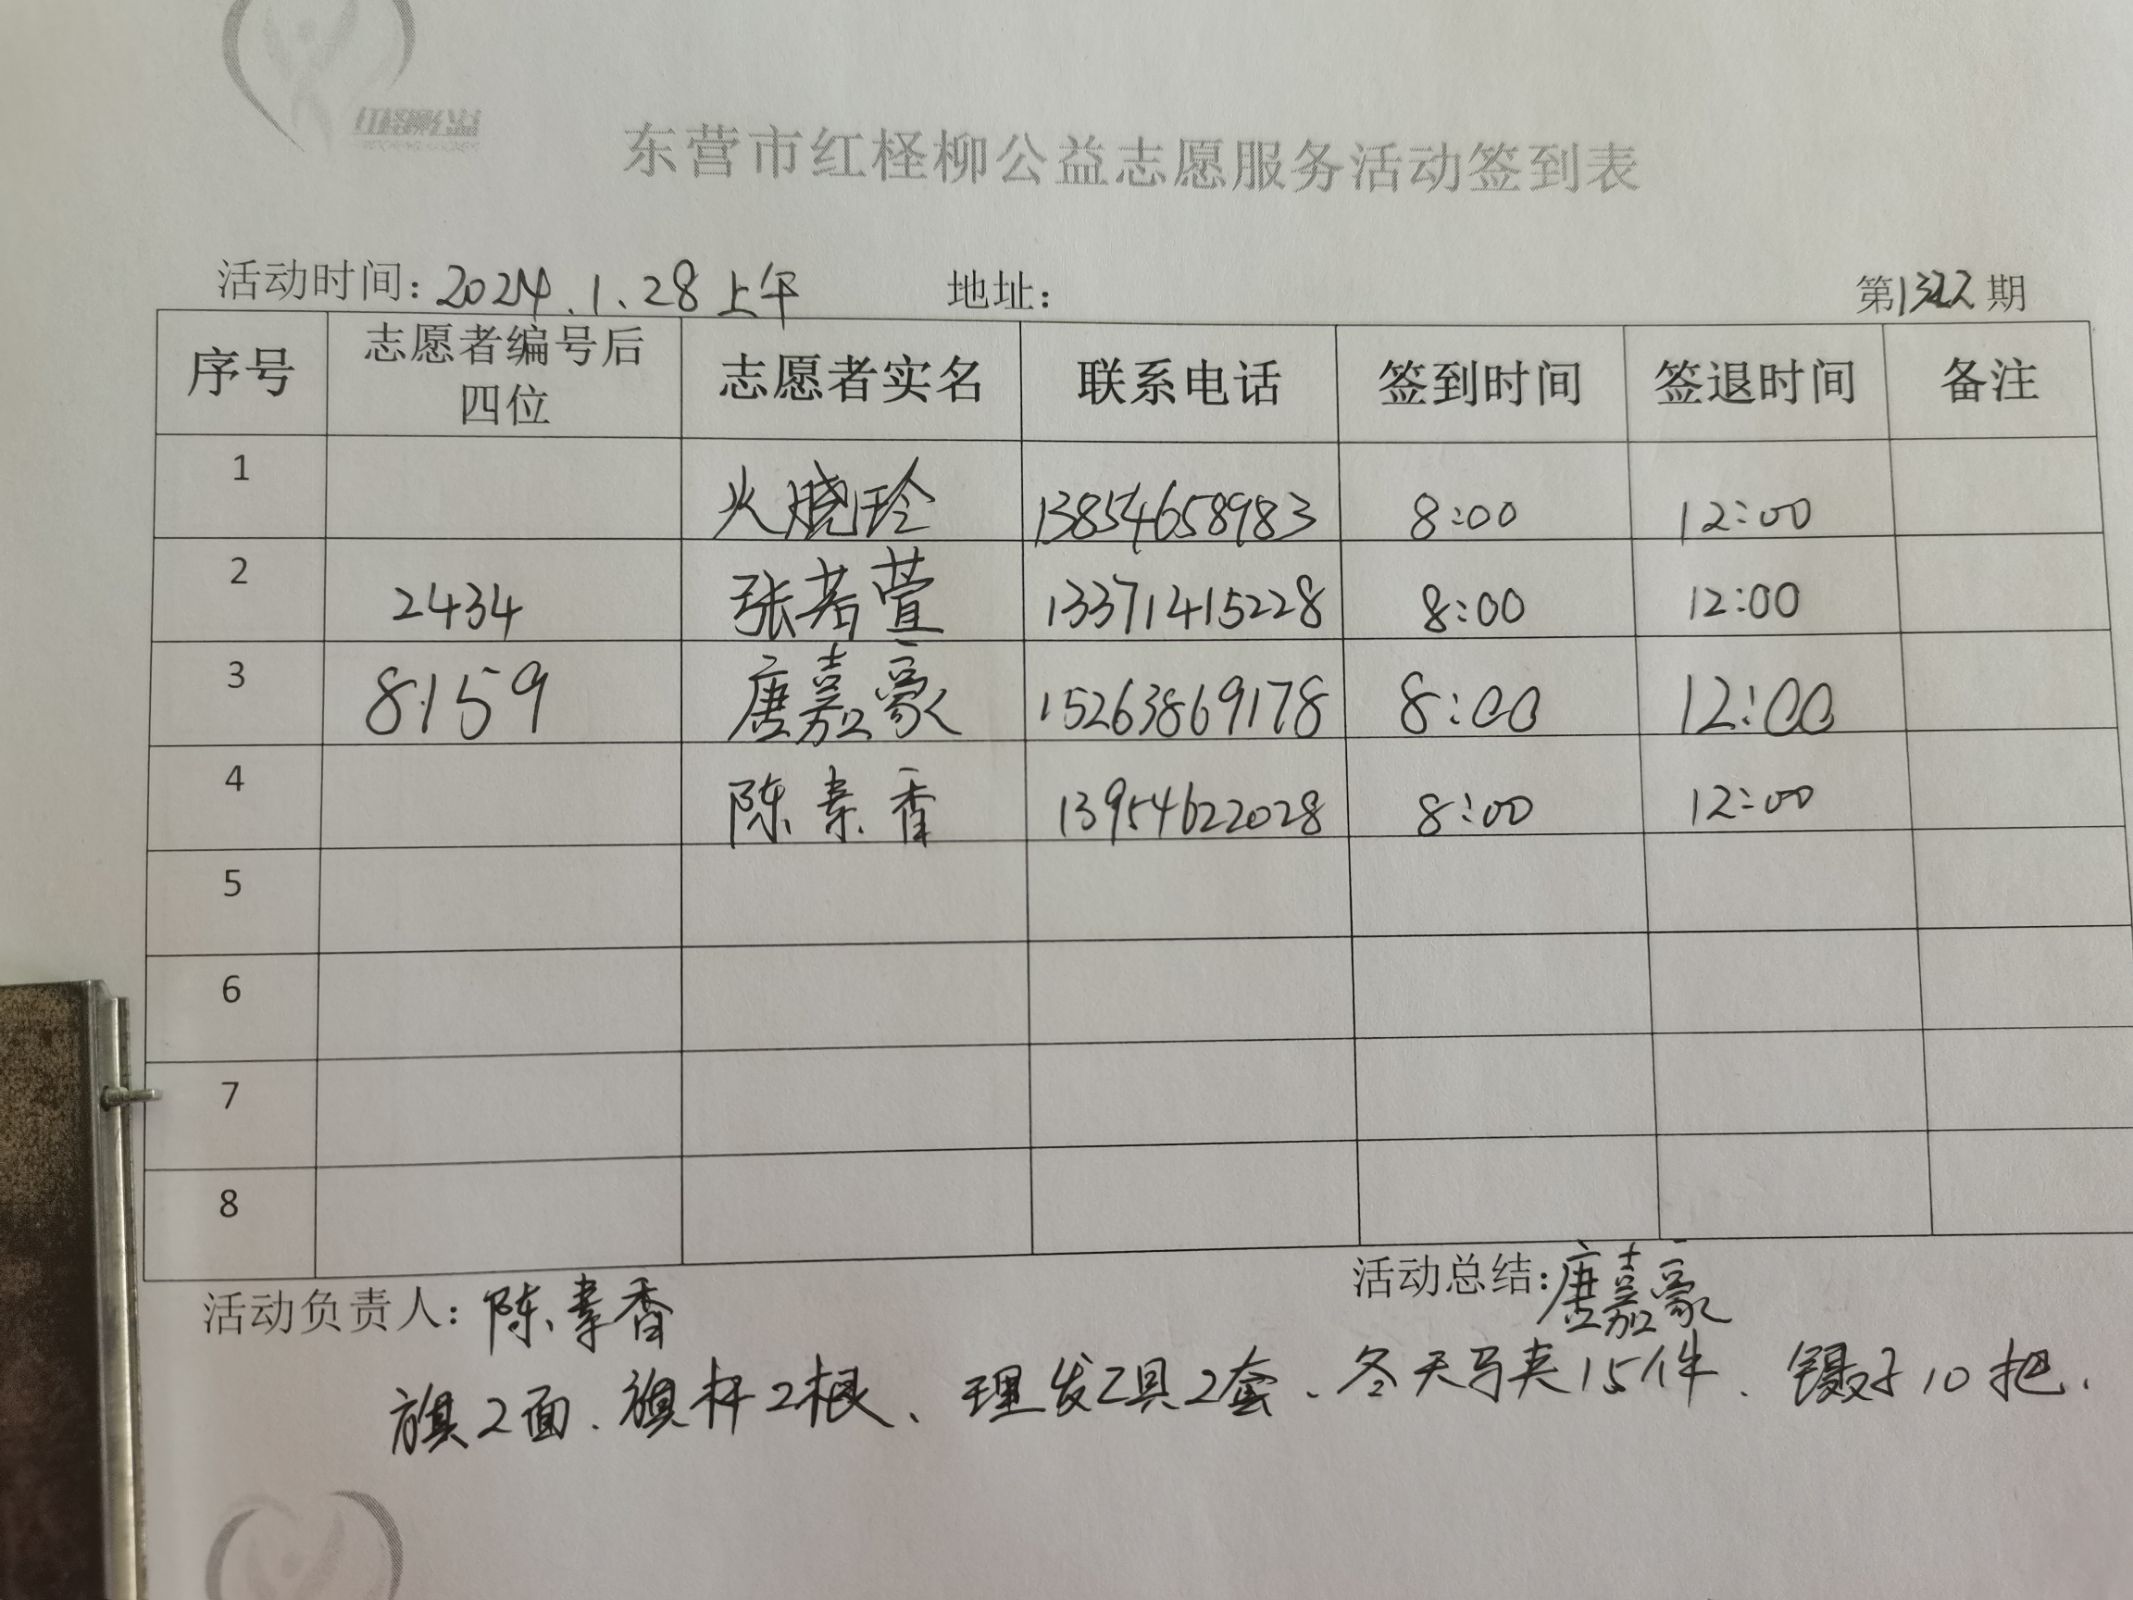 红柽柳公益
东营市红柽柳公益志愿服务活动签到表
活动时间：2024.1.28上午 地址： 第1322期
序号 志愿者编号后四位 志愿者实名 联系电话 签到时间 签退时间 备注
1 火晓玲 13854658983 8:00 12:00
2 2434 张若萱 13371415228 8:00 12:00
3 8159 唐嘉豪 15263869178 8:00 12:00
4 陈素香 13954622028 8:00 12:00
5
6
7
8
活动负责人：陈素香 活动总结：唐嘉豪
旗2面、旗杆2根、理发工具2套、冬天马夹15件、镊子10把.